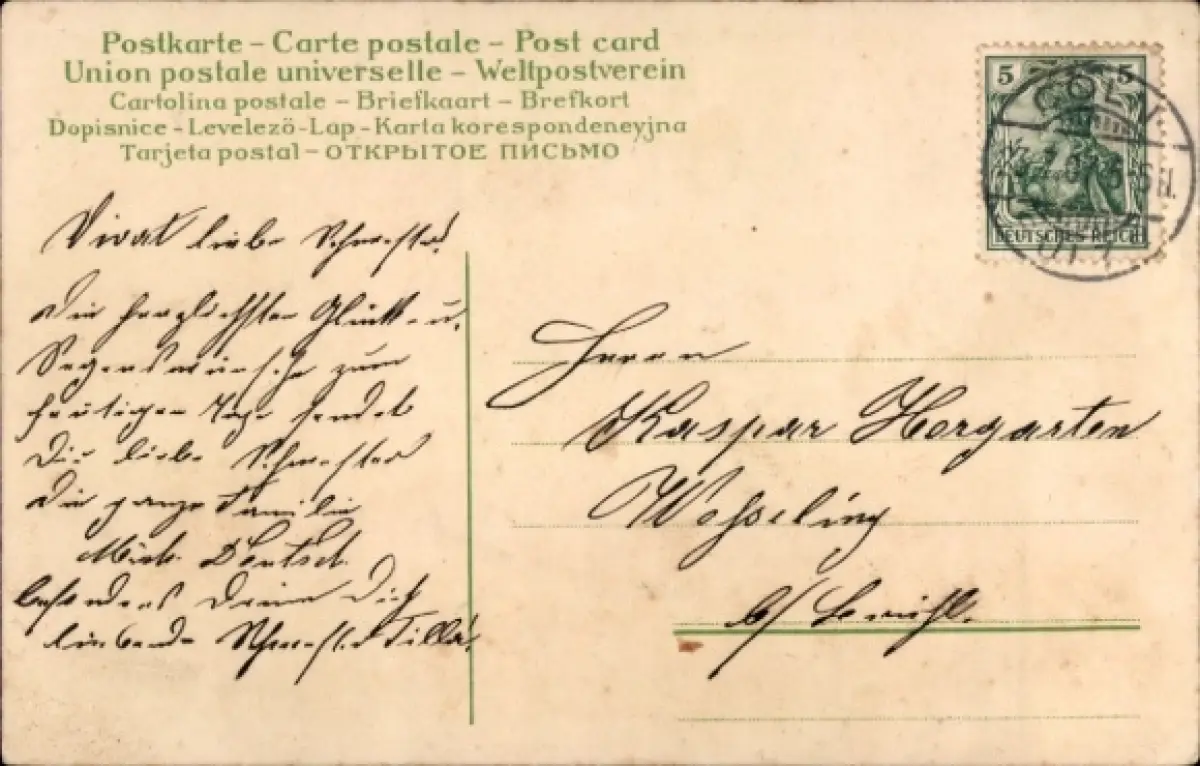 Postkarte – Carte postale – Post card
Union postale universelle – Weltpostverein
Cartolina postale – Briefkaart – Brefkort
Dopisnice - Levelezö-Lap - Karta korespondencyjna
Tarjeta postal – ОТКРЫТОЕ ПИСЬМО
5 5
DEUTSCHES REICH
CÖLN
Vivat liebe Schwester!
Die herzlichsten Glück- u.
Segenswünsche zum
heutigen Tage sendet
Dir liebe Schwester
Die ganze Familie
Deutsch.
besonders Deine Dich
liebende Schwester Tilla.
Herrn
Kaspar Horgarten
Wesseling
b/ Brühl.